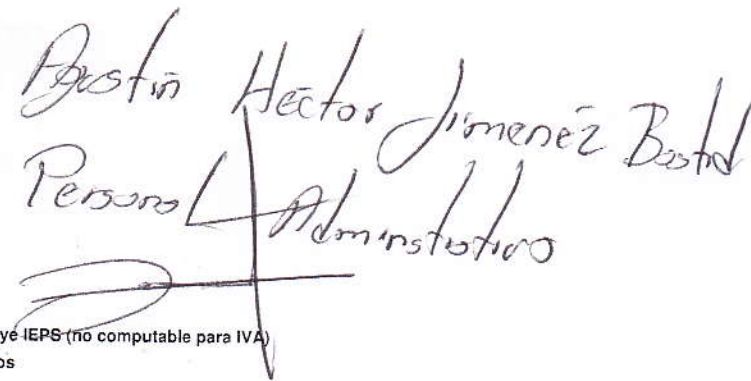 Agustín Héctor Jimenéz Bastid
Personal Administrativo
ye IEPS (no computable para IVA)
os